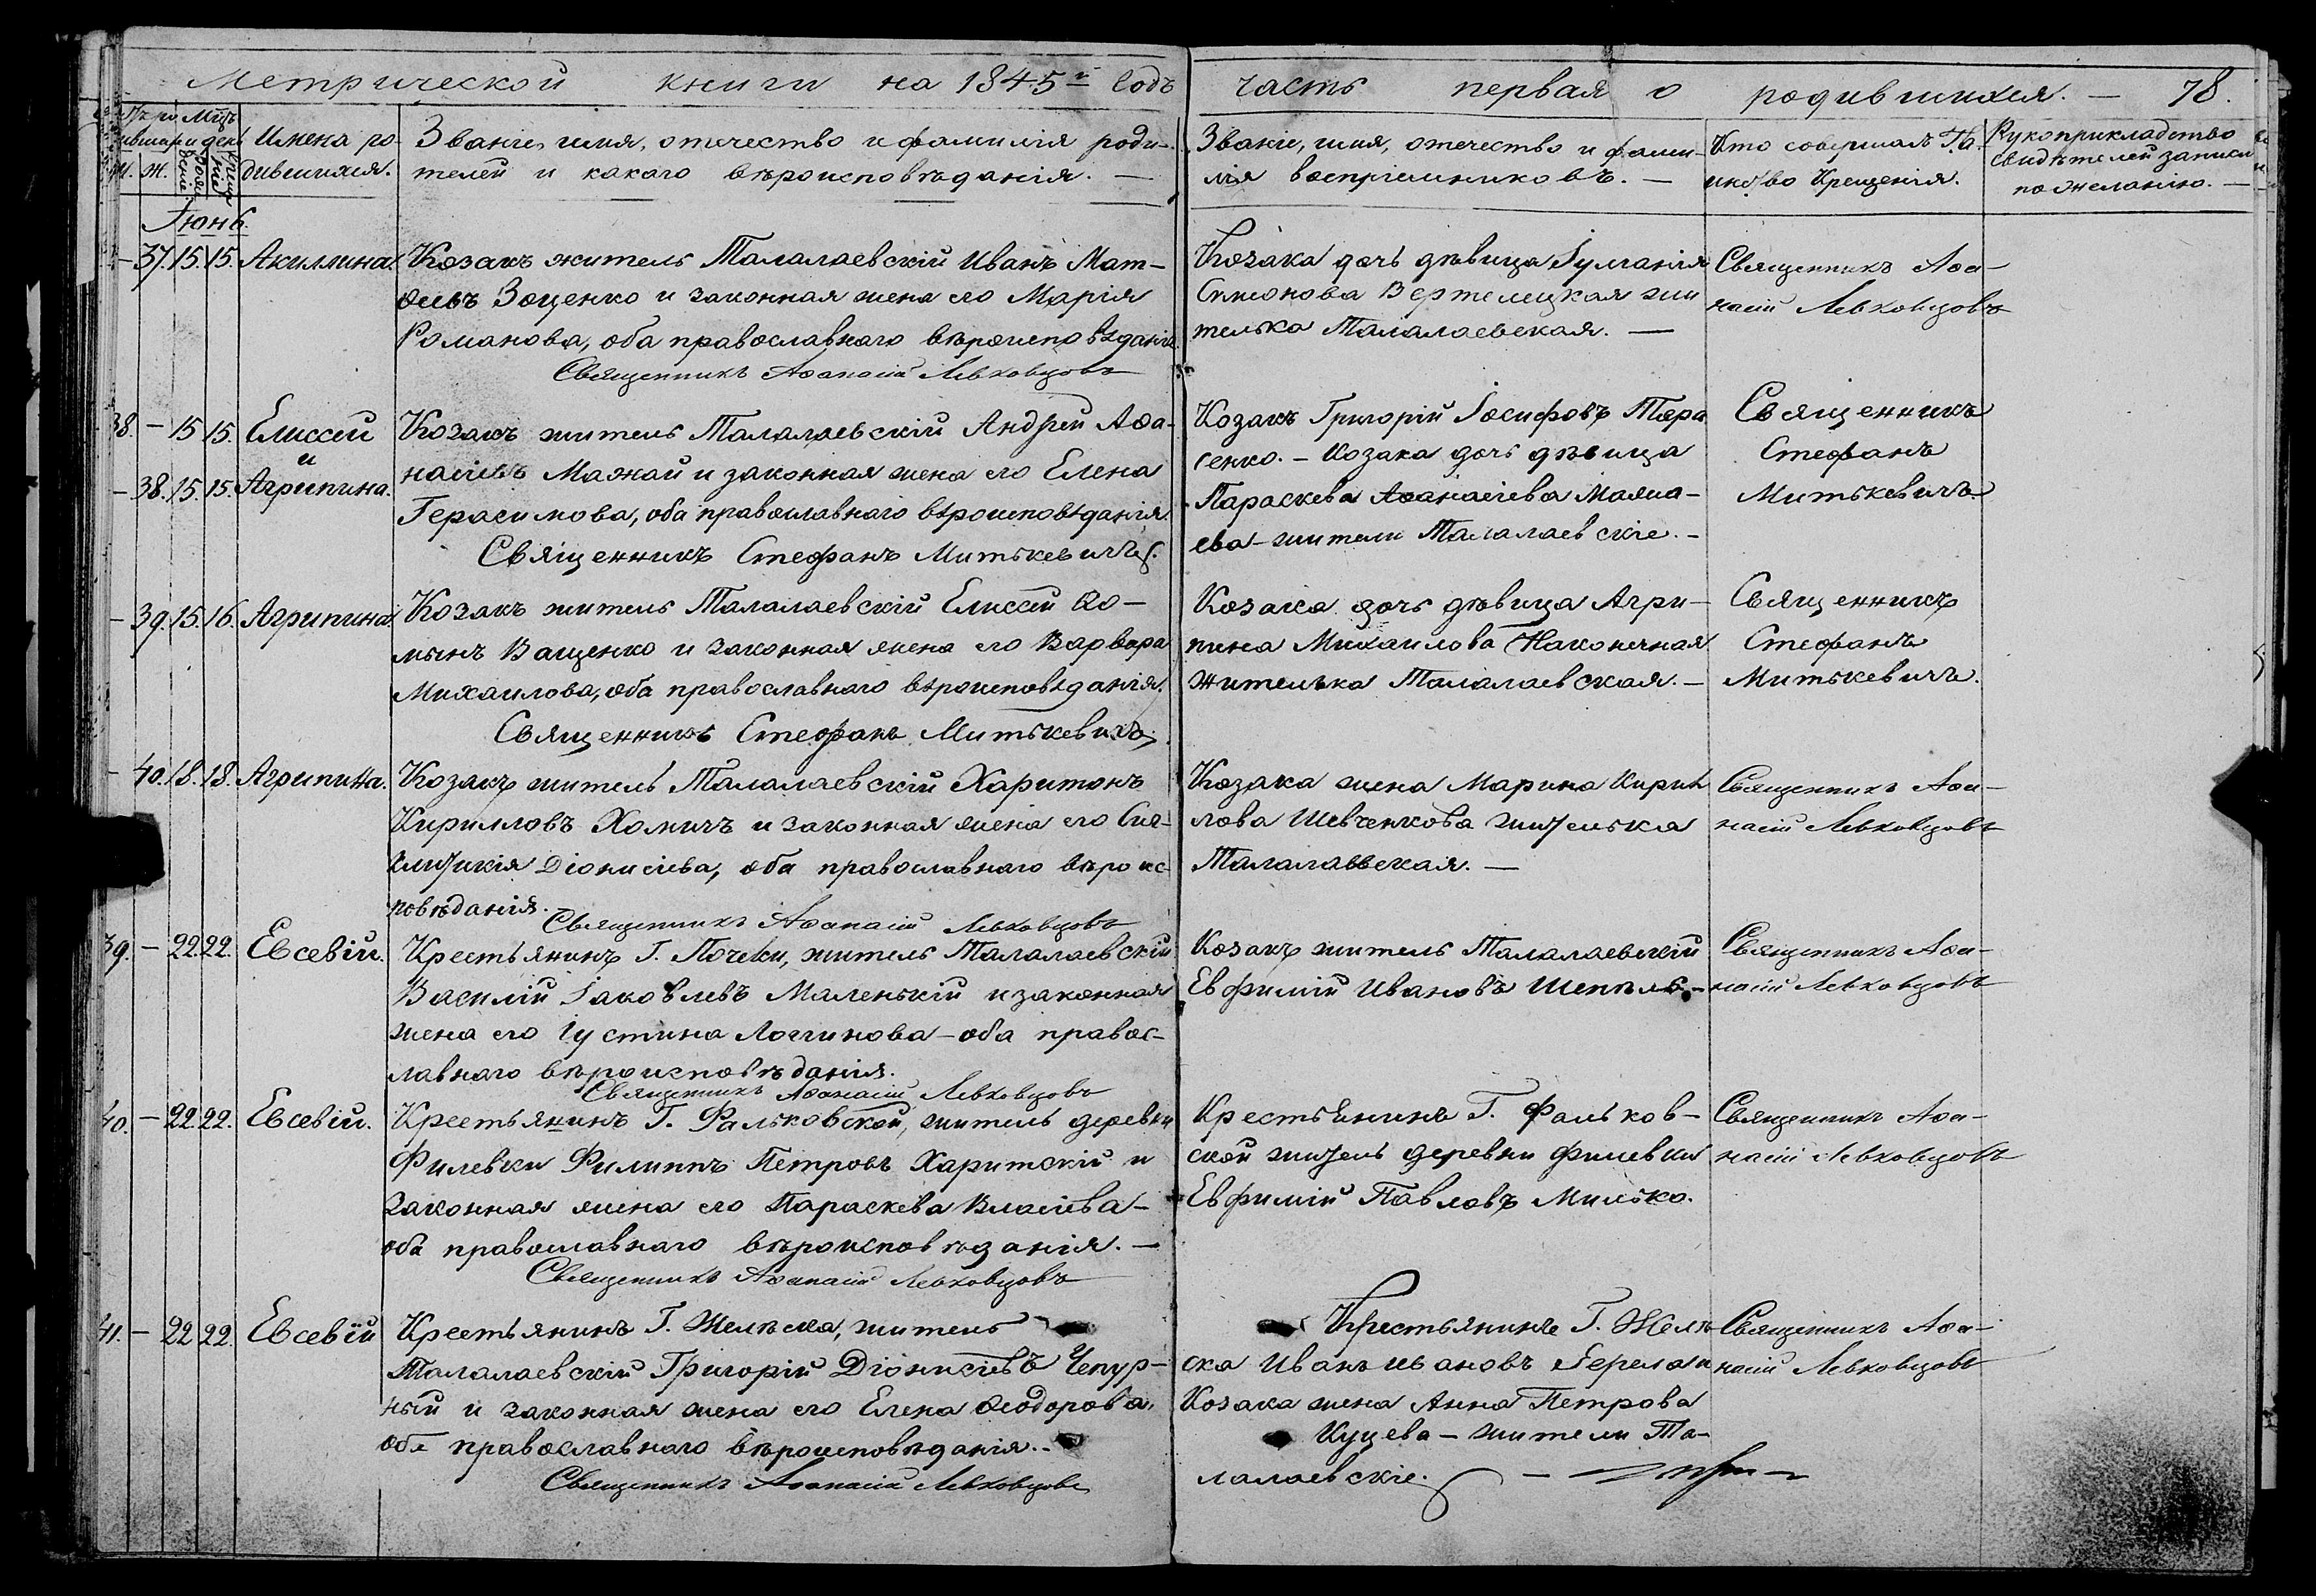 Метрической книги на 1845й годъ часть первая о родившихся. — 78.
Имена ро-
дившихся.
Званіе, имя, отечество и фамилія роди-
телей и какаго вѣроисповѣданія. —
Званіе, имя, отечество и фами-
лія воспріемниковъ. —
Кто совершалъ
Крещенія.
Рукоприкладство
свидѣтелей записи
по желанію. —
Іюнь.
— 37. 15. 15. Акилина.
Козакъ житель Талалаевскій Иванъ Мат-
ѳеевъ Зоценко и законная жена его Марія
Романова, оба православнаго вѣроисповѣданія
Священникъ Аѳанасій Левховцовъ
Козака дочь дѣвица Іуліанія
Симонова Вертелецкая жи
телька Талалаевская. —
Священникъ Аѳа-
насій Левховцовъ
38. — 15 15. Елиссей
и
— 38. 15. 15. Агрипина.
Козакъ житель Талалаевскій Андрей Аѳа-
насіевъ Мажай и законная жена его Елена
Герасимова, оба православнаго вѣроисповѣданія.
Священникъ Стефанъ Митькевичъ.
Козакъ Григорій Іосифовъ Тара
сенко. — Козака дочь дѣвица
Параскева Аѳанасіева Мажа-
ева — жители Талалаевскіе. —
Священникъ
Стефанъ
Митькевичъ
— 39. 15. 16. Агрипина.
Козакъ житель Талалаевскій Елиссей Ѳо-
минъ Ващенко и законная жена его Варвара
Михаилова, оба православнаго вѣроисповѣданія.
Священникъ Стефанъ Митькевичъ.
Козака дочь дѣвица Агри-
пина Михаилова Наконечная
жителька Талалаевская. —
Священникъ
Стефанъ
Митькевичъ.
— 40. 18. 18. Агрипина.
Козакъ житель Талалаевскій Харитонъ
Кирилловъ Хомичъ и законная жена его
Діонисіева, оба православнаго вѣроис-
повѣданія.
Священникъ Аѳанасій Левховцовъ
Козака жена Марина Кирил
лова Шевченкова жителька
Талалаевская. —
Священникъ Аѳа-
насій Левховцовъ
39. — 22. 22. Евсевій.
Крестьянинъ Г. Почеки, житель Талалаевскій
Василій Іаковлевъ Маленькій и законная
жена его Іустина Логгинова — оба правос-
лавнаго вѣроисповѣданія.
Священникъ Аѳанасій Левховцовъ
Козакъ житель Талалаевскій
Евфимій Ивановъ
Священникъ Аѳа-
насій Левховцовъ
40. — 22. 22. Евсевій.
Крестьянинъ Г. Фальковской, житель деревни
Филевки Филиппъ Петровъ Харитскій и
законная жена его Параскева Власіева —
оба православнаго вѣроисповѣданія. —
Священникъ Аѳанасій Левховцовъ
Крестьянинъ Г. Фальков-
ской житель деревни Филевки
Евфимій Павловъ Милько.
Священникъ Аѳа-
насій Левховцовъ
41. — 22 22. Евсевій
Крестьянинъ Г. Желѣска, житель
Талалаевскій Григорій Діонисіевъ Чепур-
ный и законная жена его Елена Ѳеодорова,
оба православнаго вѣроисповѣданія. —
Священникъ Аѳанасій Левховцовъ
Крестьянинъ Г. Желѣ
ска Иванъ Ивановъ
Козака жена Анна Петрова
Куцева — жители Та-
лалаевскіе.
Священникъ Аѳа-
насій Левховцовъ